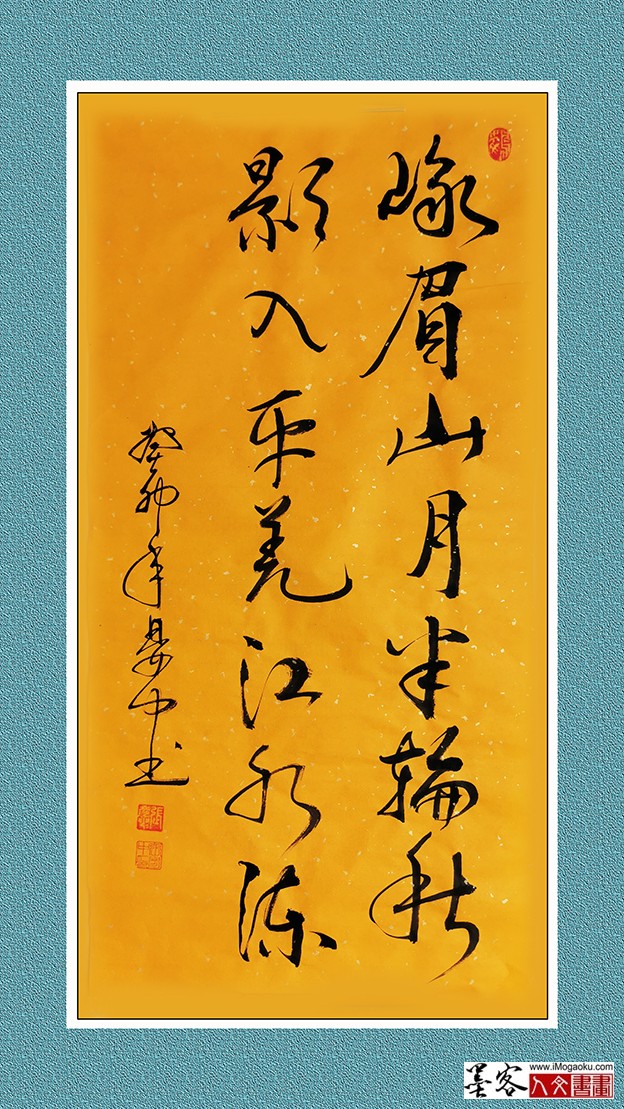 峨眉山月半輪秋
影入平羌江水流
癸卯年晏中书
墨客
www.iMogaoku.com
人文書畫